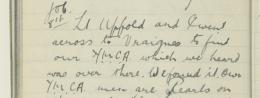 Feb.
8th. Lt Uffold and I went
across to Vraignes to find
our Y.M.C.A. which we heard
was over there. We found it. Our
Y.M.C.A. men are pearls on